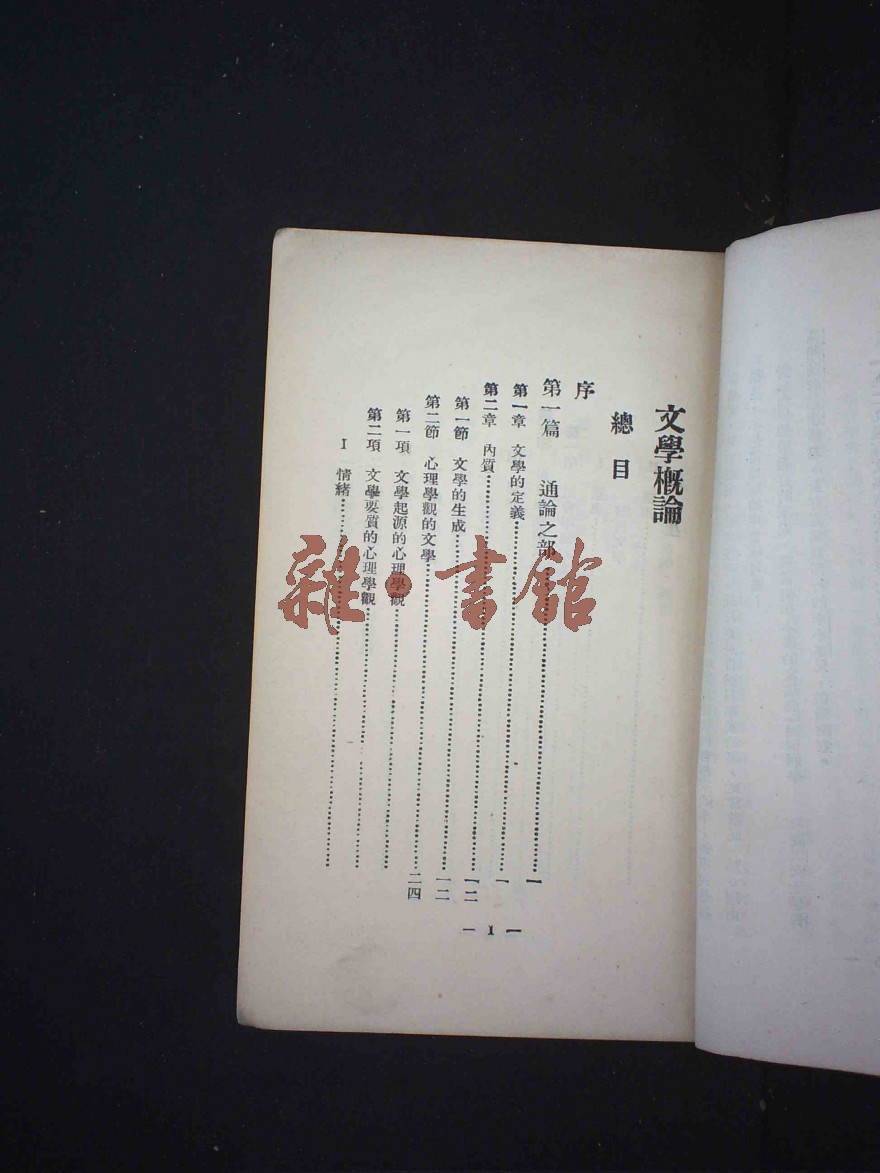 文學概論
總目
序
第一篇 通論之部……一
第一章 文學的定義……一
第二章 內質……一二
第一節 文學的生成……一二
第二節 心理學觀的文學……二四
第一項 文學起源的心理學觀……
第二項 文學要質的心理學觀……
I 情緒……
— 1 —
雜·書館